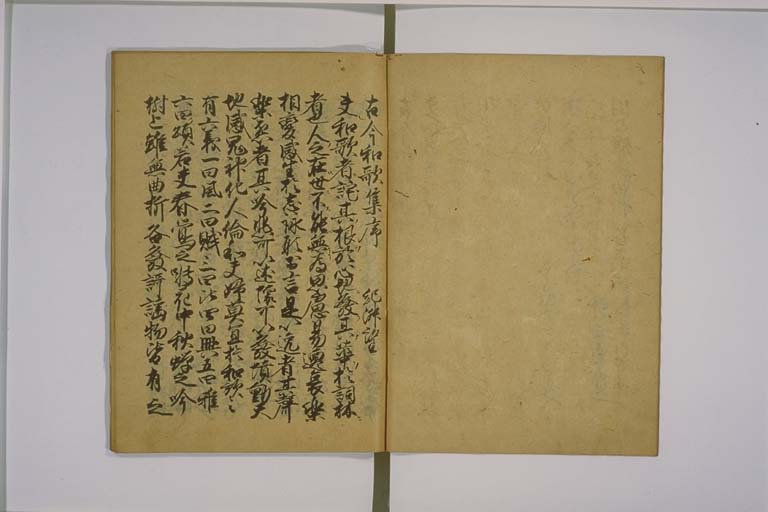 古今和歌集序 紀淑望
夫和歌者託其根於心地發其華於詞林
者也人之在世不能無為思慮易遷哀樂
相變感生於志詠形於言是以逸者其聲
樂怨者其吟悲可以述懐可以發憤動天
地感鬼神化人倫和夫婦莫宜於和歌々
有六義一曰風二曰賦三曰比四曰興五曰雅
六曰頌若夫春鶯之囀花中秋蝉之吟
樹上雖無曲折各發謌謡物皆有之